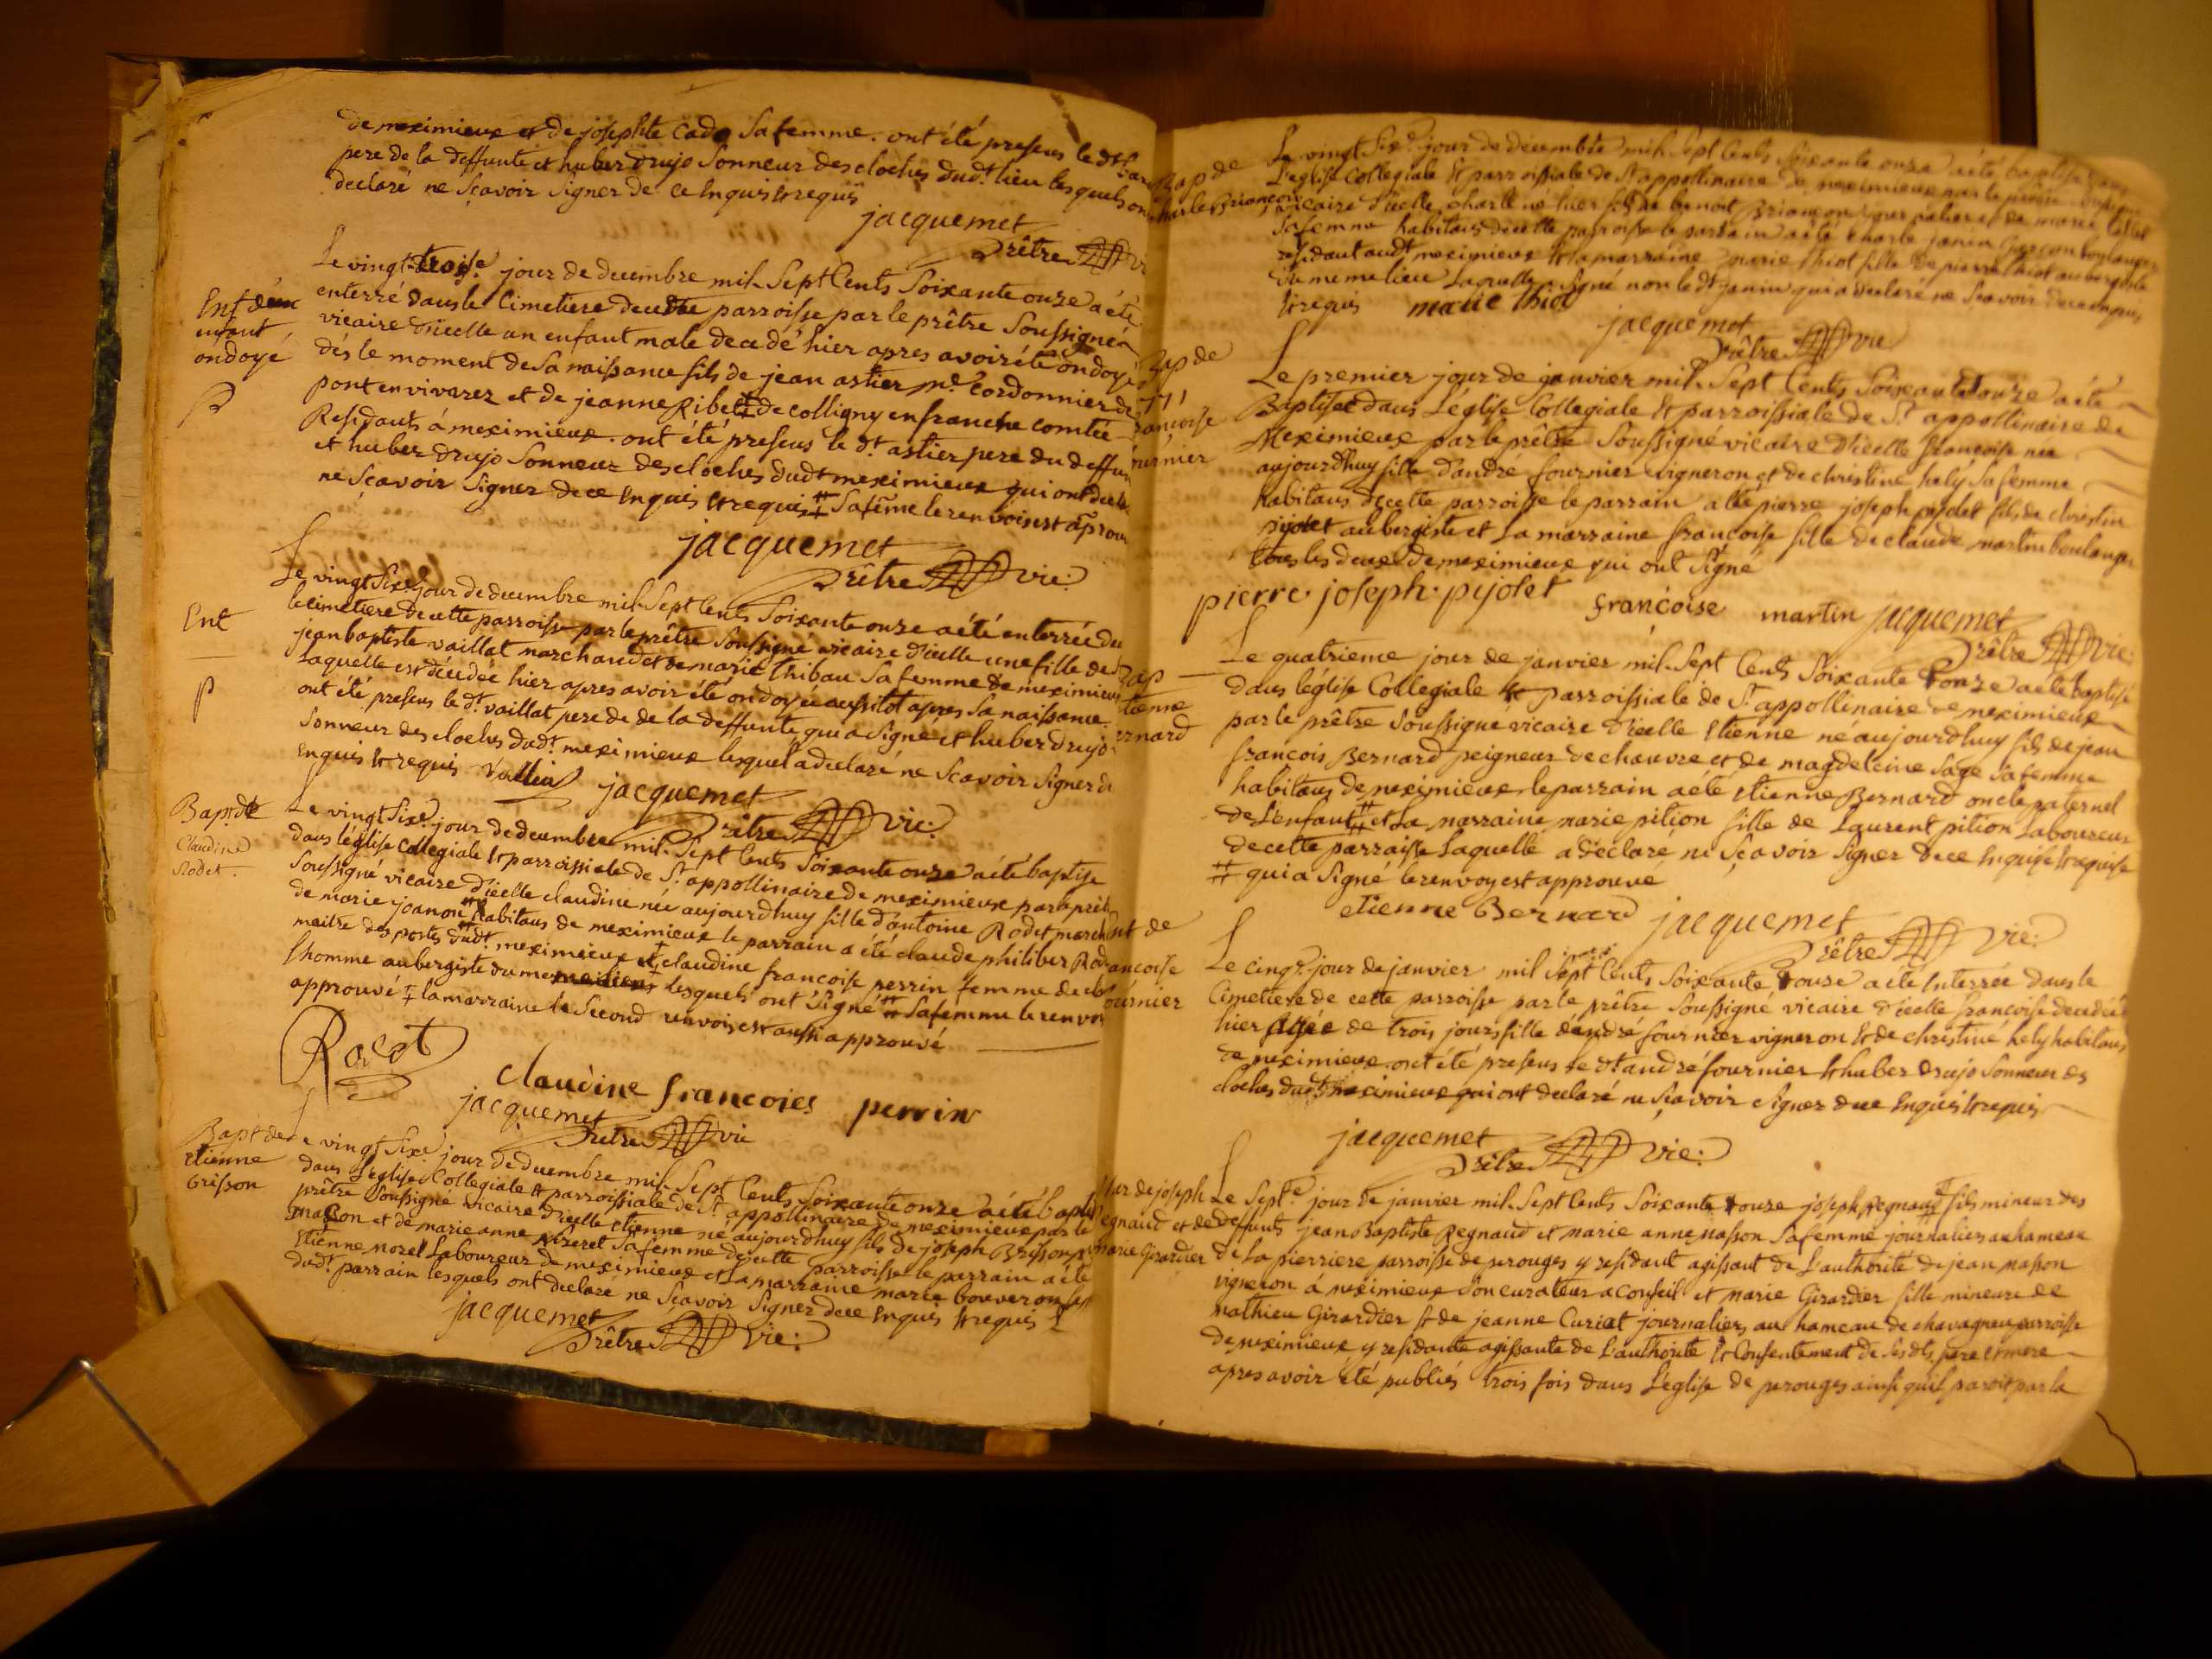 de meximieux et de josephte Cado Sa femme. ont été presens le dt
pere de la deffunte et huber drujo Sonneur des cloches dudt lieu lesquels ont
declaré ne Sçavoir Signer de ce Enquis & requis
jacquemet
Prêtre vic
Ent d'un
enfant
ondoyé
Le vingt troise jour de decembre mil Sept Cents Soixante onze a été
enterré dans le Cimetiere de cette parroisse par le prêtre Soussigné
vicaire d'icelle un enfant male decedé hier apres avoir été ondoyé
dés le moment de Sa naissance fils de jean astier me Cordonnier de
pont en vivarez et de jeanne Ribet ‡ de colligny en franche comtée
Residants á meximieux. ont été presens le dt. astier pere du deffunt
et huber drujo Sonneur des cloches dudt meximieux qui ont declaré
ne Sçavoir Signer de ce Enquis & requis ‡ Sa feme le renvoi est aprouvé
jacquemet
Prêtre vic:
Ent
Le vingt Sixe jour de decembre mil Sept Cents Soixante onze a été enterrée dans
le cimetiere de cette parroisse par le prêtre Soussigné vicaire d'icelle une fille de
jean baptiste vaillat marchand et de marie thibau Sa femme de meximieux
Laquelle est decedée hier apres avoir été ondoyée aussitot apres Sa naissance.
ont été presens le dt. vaillat pere de de la deffunte qui a Signé et huber drujo
Sonneur des cloches dudt. meximieux lesquel a declaré ne Scavoir Signer de
Enquis & requis
jacquemet
Prêtre vic:
Bapt de
Claudine
Rodet.
Le vingt Sixe jour de decembre mil Sept Cents Soixante onze a été baptise
dans léglise Collegiale & parroissiale de St. appollinaire de meximieux par le prêtre
Soussigné vicaire d'icelle claudine née aujourdhuy fille d'antoine Rodet march
de marie joanon ‡ habitans de meximieux le parrain a été claude philiber Rodet
maitre des postes dudt. meximieux et ‡ claudine francoise perrin femme de
lhomme aubergiste du meme lieu lesquels ont Signé ‡ Sa femme le renvoi
approuvé ‡ la marraine le Second renvoi est aussi approuvé
Rodet
claudine francoies perrin
jacquemet
Prêtre vic
Bapt de
etienne
Grisson
Le vingt Sixe jour de decembre mil Sept Cents Soixante onze a été baptisé
dans L'eglise Collegiale & parroissiale de St. appollinaire de meximieux par le
prêtre Soussigné vicaire d'icelle etienne né aujourdhuy fils de joseph Grisson
maçon et de marie anne Sa femme de cette parroisse le parrain a été
Etienne morel Laboureur de meximieux et La marraine marie bouveron
dudt. parrain lesquels ont declaré ne Sçavoir Signer de ce Enquis & requis
jacquemet
Prêtre vic:
Bap de
charle Briançon
Le vingt Sixe. jour de décembre mil Sept Cents Soixante onze a été baptisé dans
L'eglise Collegiale & parroissiale de St appollinaire de meximieux par le prêtre
vicaire d'icelle charle né hier fils de benoit Briançon et de marie
Sa femme habitans de cette parroisse le parrain a été charle janin garçon boulanger
residant audt meximieux & la marraine marie thiot fille de pierre thiot aubergiste
du meme lieu Laquelle a Signé non le dt janin qui a declaré ne Sçavoir de ce enquis
& requis marie thiot
jacquemet
Prêtre vic
Bap de
françoise
fournier
Le premier jour de janvier mil Sept Cents Soixante douze a été
Baptisee dans L'église Collegiale & parroissiale de St appollinaire de
Meximieux par le prêtre Soussigné vicaire d'icelle francoise née
aujourdhuy fille d'andré fournier vigneron et de christine hely Sa femme
habitans de cette parroisse le parrain a été pierre joseph pijolet fils de christin
pijolet aubergiste et La marraine francoise fille de claude martin boulanger
tous les deux de meximieux qui ont Signé
pierre joseph pijolet françoise martin jacquemet
Prêtre vic:
Bap
etienne
Bernard
Le quatrieme jour de janvier mil Sept Cents Soixante douze a été baptisé
dans léglise Collegiale & parroissiale de St. appollinaire de meximieux
par le prêtre Soussigné vicaire d'icelle Etienne né aujourdhuy fils de jean
françois Bernard peigneur de chanvre et de magdeleine Sage Sa femme
habitans de meximieux le parrain a été etienne Bernard oncle paternel
de L'enfant ‡ et La marraine marie pition fille de Laurent pition Laboureur
de cette parraisse Laquelle a declaré ne Sçavoir Signer de ce Enquise & requise
‡ qui a Signé le renvoy est approuvé
etienne Bernard jacquemet
Prêtre vic:
Ent de
françoise
fournier
Le cinqe. jour de janvier mil Sept Cents Soixante douze a été Enterrée dans le
Cimetiere de cette parroisse par le prêtre Soussigné vicaire d'icelle francoise decedée
hier Agée de trois jours fille d'andré fournier vigneron & de christine hely habitans
de meximieux. ont été presens le dt andré fournier & huber drujo Sonneur des
cloches dudt meximieux qui ont declaré ne Sçavoir Signer de ce Enquis & requis
jacquemet
Prêtre vic:
Mar de joseph
Regnaud et de
marie Girardier
Le Septe jour de janvier mil Sept Cents Soixante douze joseph Regnaud fils mineur des
deffunts jean Baptiste Regnaud et marie anne masson Sa femme journaliers au hameau
de La pierriere parroisse de perouges y residant agissant de L'authorité de jean masson
vigneron á meximieux Son curateur a Conseil et marie Girardier fille mineure de
mathieu Girardier & de jeanne Curiat journaliers au hameau de chavagneu parroisse
de meximieux y residante agissante de L'authorité & Consentement de Ses dts pere & mere
apres avoir été publiés trois fois dans L'église de perouges ainsi quil paroit par la